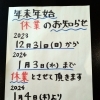 年末年始
休業のお知らせ
2023
12月31日(日)から
2024
1月3日(水)まで
休業とさせて頂きます
2024
1月4日(木)より